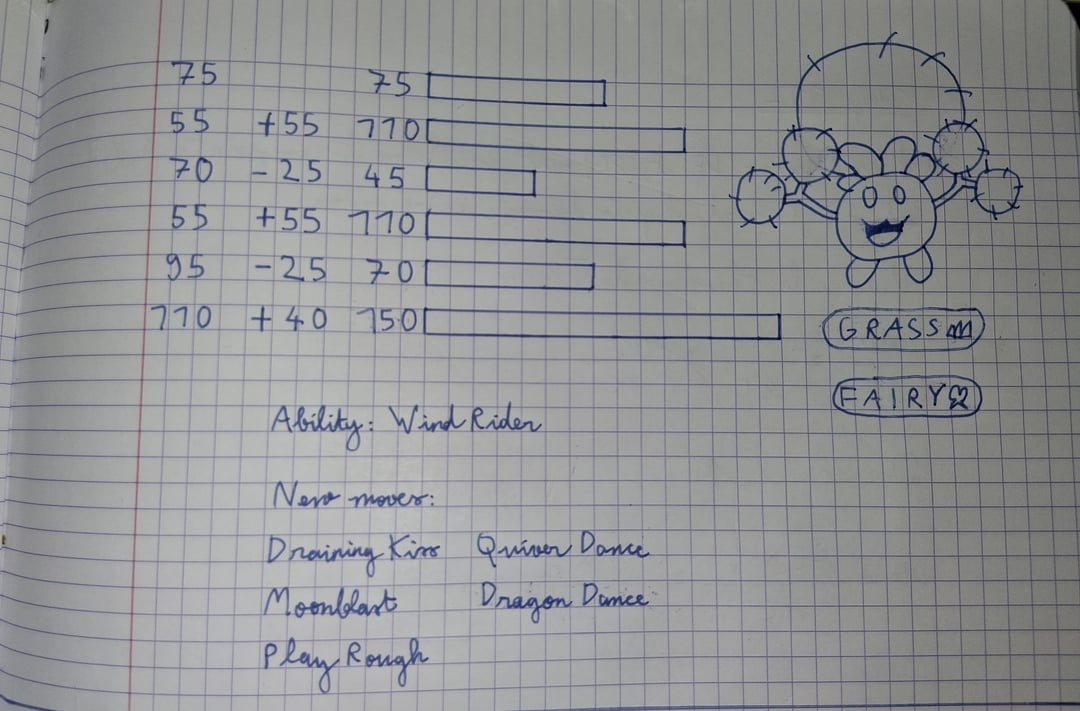 75 75
55 +55 110
70 -25 45
55 +55 110
95 -25 70
110 +40 150
GRASS
FAIRY
Ability: Wind Rider
New moves:
Draining Kiss Quiver Dance
Moonblast Dragon Dance
Play Rough